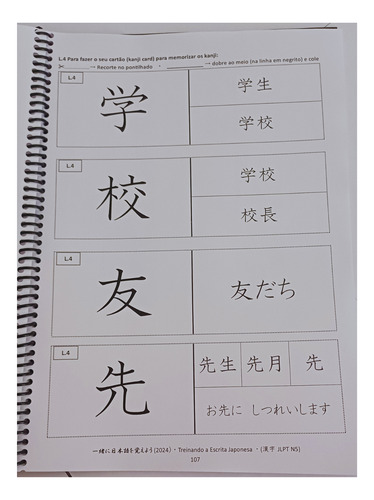 L.4 Para fazer o seu cartão (kanji card) para memorizar os kanji:
✂............→ Recorte no pontilhado • ____________→ dobre ao meio (na linha em negrito) e cole
L.4
学
学生
学校
L.4
校
学校
校長
L.4
友
友だち
L.4
先
先生 先月 先
お先に しつれいします
一緒に日本語を覚えよう(2024) • Treinando a Escrita Japonesa • (漢字 JLPT N5)
107